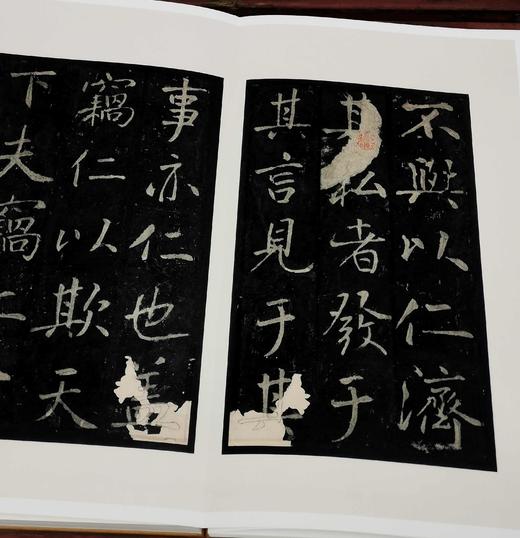 不與以仁濟
其私者發于
其言見于其
事亦仁也盖
竊仁以欺天
下夫竊